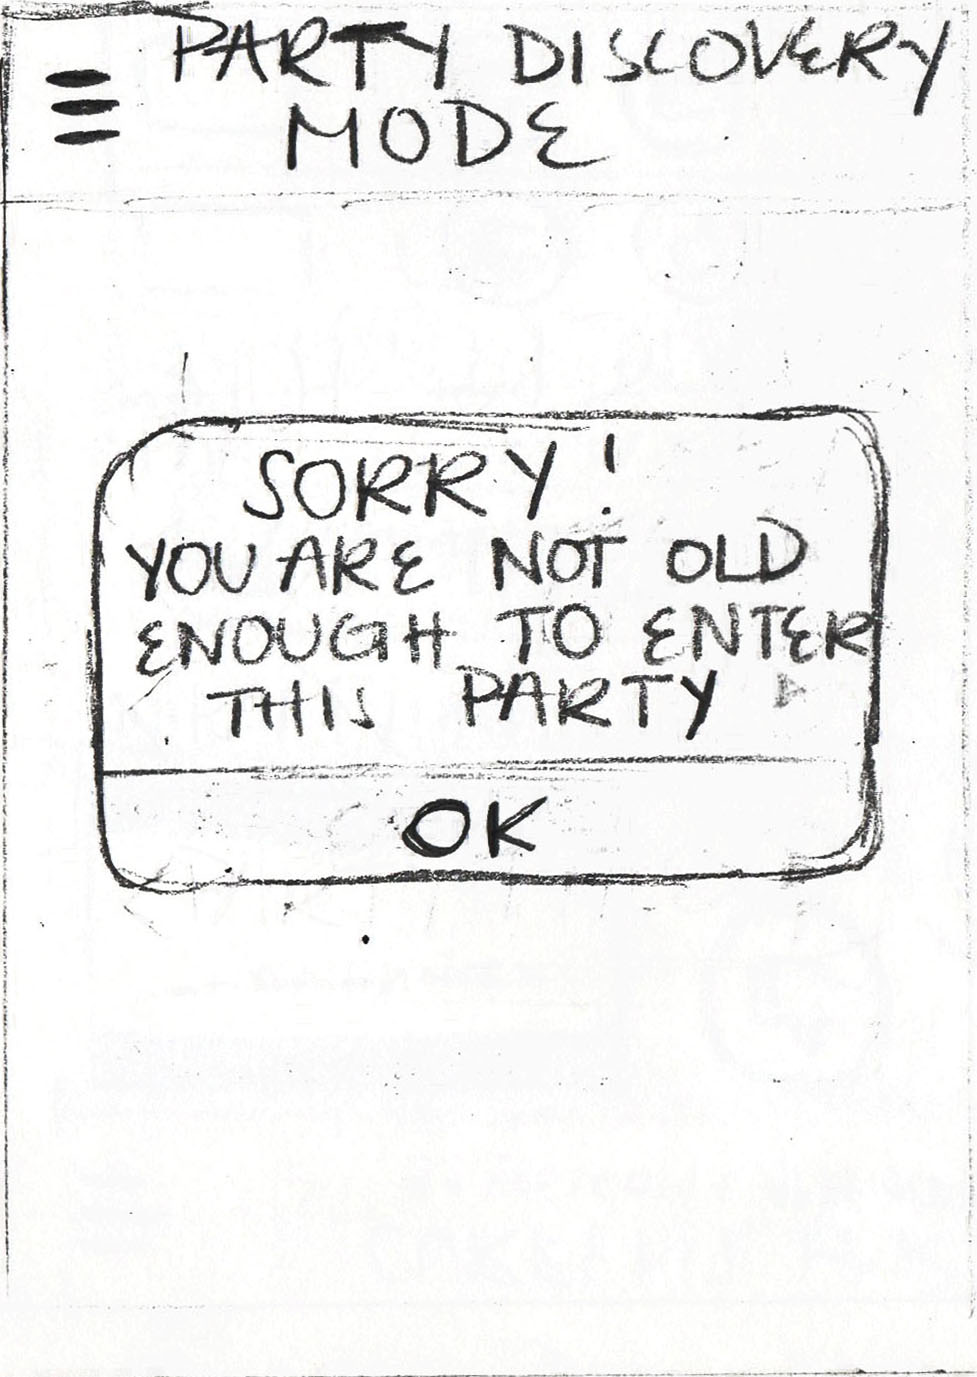 PARTY DISCOVERY
MODE
SORRY!
YOU ARE NOT OLD
ENOUGH TO ENTER
THIS PARTY
OK